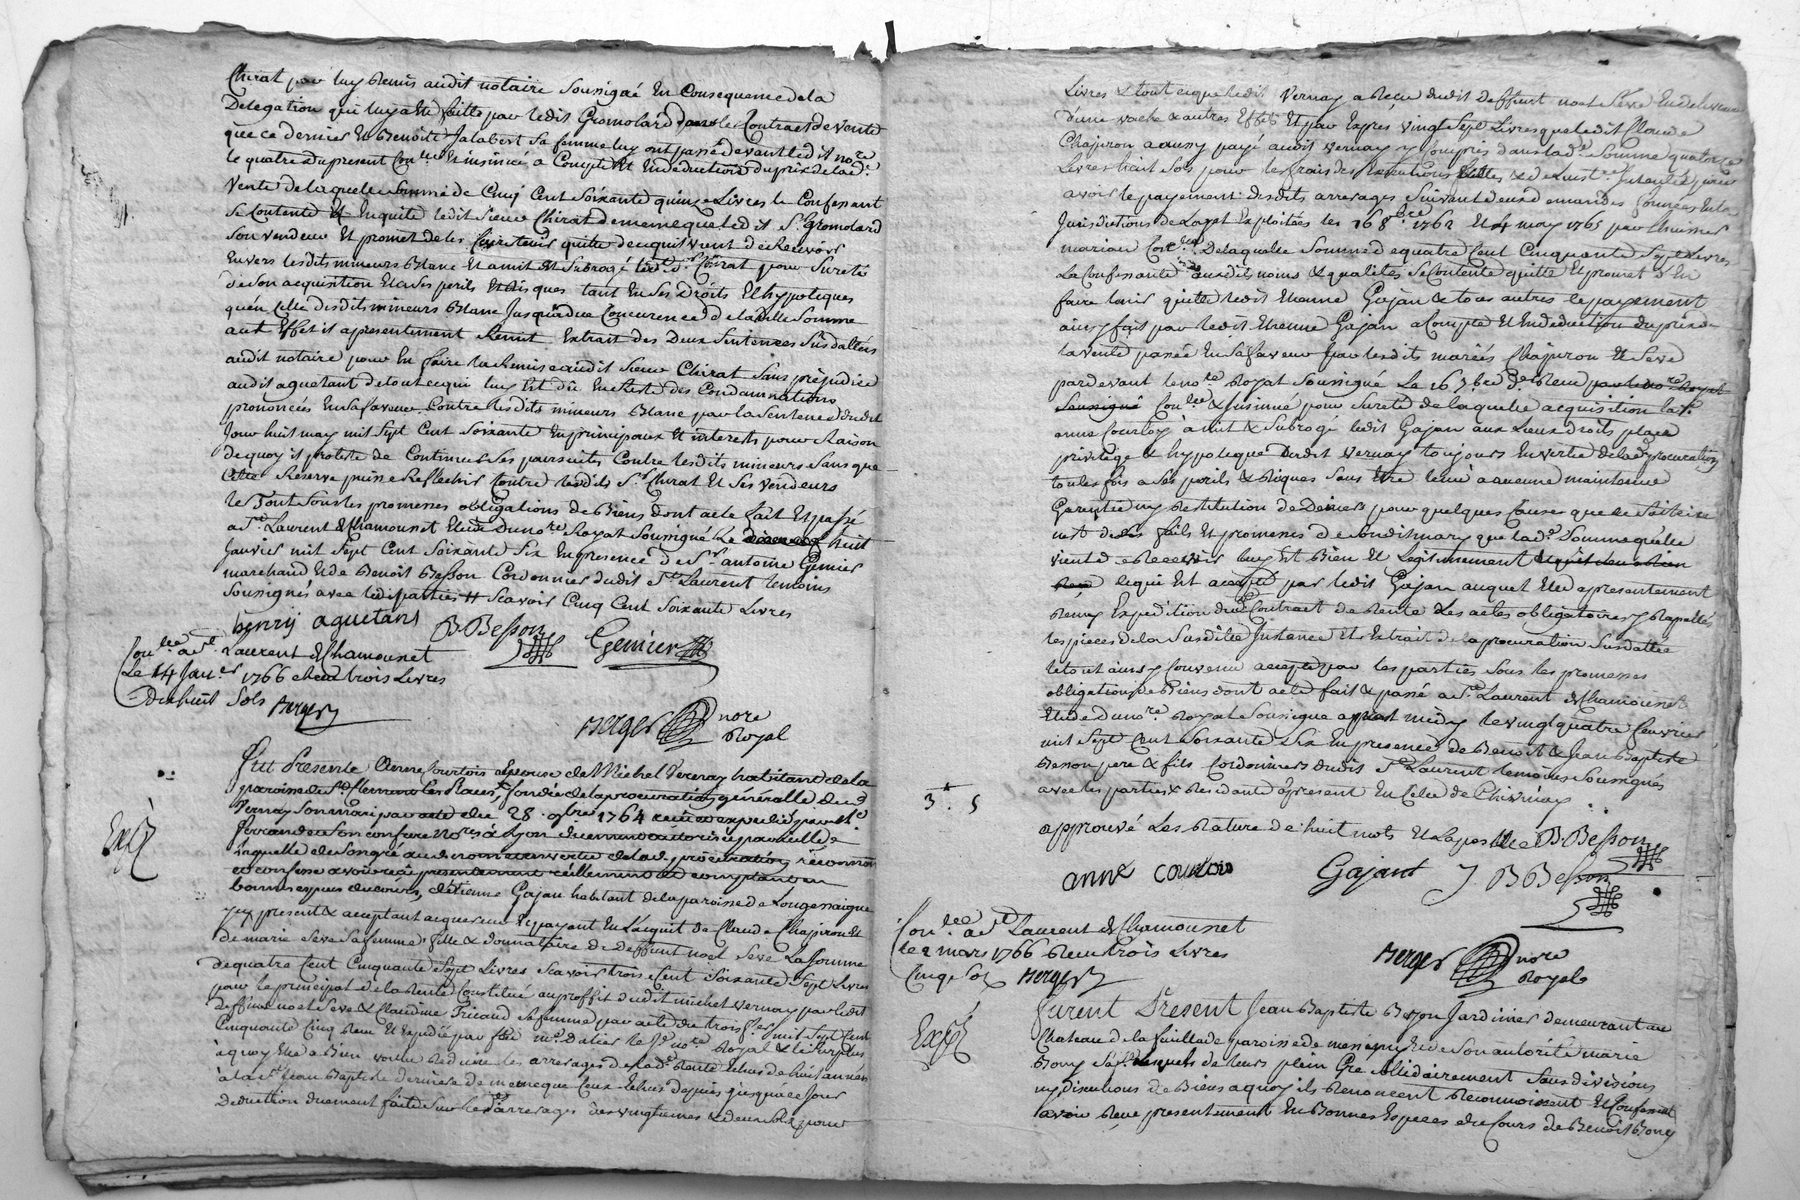 Chirat par luy remis audit notaire soussigné En Consequence de la
Delegation qui luy a Eté faitte par ledit Gromolard dans le Contract de vente
que ce dernier Et Benoite Jalabert sa femme luy ont passé devant ledit no.re
le quatre du present Con.llé Et insinué a Compte Et En deduction du prix de lad.e
vente de laquelle somme de Cinq Cent soixante quinze Livres le Confessant
se Contente Et En quitte ledit sieur Chirat de meme que ledit S.r Gromolard
son vendeur Et promet de les faire tenir quitte de ce qu'il vient de Recevoir
Envers lesdits mineurs Blanc Et a mit Et subrogé led. S.r Chirat pour sureté
de son acquisition Et a ses perils Et Risques tant En ses Droits Et hypoteques
qu'en Celle desdits mineurs Blanc Jusqu'a due Concurence de ladite somme
aud. Effet il a presentement Remit Extrait des Deux sentences susdattées
audit notaire pour En faire la Remise audit sieur Chirat sans prejudice
audit aguetant de tout ce qui luy Est dû En Reste des Condamnations
prononcées En sa faveur Contre lesdits mineurs Blanc par la sentence dudit
Jour huit may mil sept Cent soixante En principaux Et interets pour Raison
de quoy il proteste de Continuer ses poursuites Contre lesdits mineurs sans que
Cette Reserve puisse Reflechir Contre lesdits S.r Chirat Et ses vendeurs
le Tout sous les promesses obligations de Biens dont acte fait Et passé
a S.t Laurent de Chamousset Etude du no.re Royal soussigné Le huit
Janvier mil sept Cent soixante six En presence de S.r antoine Genier
marchand Et de Benoit Besson Cordonnier dudit S.t Laurent temoins
soussignés avec lesdi parties # scavoir Cinq Cent soixante Livres
henry aguetant B. Besson Genier
Con.llé a S.t Laurent de Chamousset
Le 14 Jan.er 1766 Reçu trois Livres
Dixhuit sols Berger
Berger nore
Royal
Fut Presente Anne Courtois Epouse de Michel Vernay habitant de la
paroisse de S.t Clement les Places fondée de la procuration généralle dud.
Vernay son mari par acte du 28 9bre 1764 reçu et expedié par M.e
Ferrandeu son confrere No.res à Lyon
Laquelle de son gré aud. nom et en vertu de lad. procuration reconnoit
et confesse avoir reçû presentement réellement et comptant en
bonnes especes du cours, d'Etienne Gajan habitant de la paroisse de Longessaigne
icy present & acceptant acquereur & payant En L'acquit de Claude Chapiron Et
de marie Seve sa femme fille & donnataire de Deffunt noel Seve La somme
de quatre Cent Cinquante sept Livres scavoir trois Cent soixante sept Livres
pour le principal de la Rente Constitué au proffit dudit michel vernay par ledit
deffunt noel Seve & Claudine Ficaud sa femme par acte du trois mil sept Cent
Cinquante Cinq Reçu Et Expedié par feu m.e Dalier le J.e no.re Royal & le surplus
a quoy Elle a Bien voulu Reduire les arrerages de lad.e Rente Echus de huit années
a la S.t Jean Baptiste derniere de meme que Ceux Echus depuis jusqu'a ce Jour
deduction duement faite sur lesd. arrerages des vingtiemes & deux sols pour
Exp.é
Livres & tout ce que ledit Vernay a Reçu dudit deffunt noel Seve En delivrance
d'une vache & autres Effets Et par Exprés vingt sept Livres que ledit Claude
Chapiron a aussy payé audit Vernay y Compris dans lad.e somme quatorze
Livres huit sols pour les frais des Executions faittes & de L'inst.ce Intentée pour
avoir le payement desdits arrerages suivant deux demandes formées En la
Jurisdictions de Loyat Exploitées les 16 8bre 1762 Et 4 may 1765 par L'huissier
marion De laquelle somme de quatre Cent Cinquante sept Livres
La Confessante ausdits noms & qualités se Contente quitte Et promet d'En
faire tenir quitte ledit Etienne Gajan & tous autres le payement
ainsy fait par ledit Etienne Gajan a Compte Et En deduction du prix de
la vente passée En sa faveur par lesdits mariés Chapiron Et Seve
pardevant le no.re Royal soussigné Le 16 Reçu par le no.re Royal
soussigné Con.llé & insinué pour sureté de laquelle acquisition lad.e
anne Courtois a mit & subrogé ledit Gajan aux Lieux droits place
privilege & hypoteque dudit Vernay toujours En vertu de lad.e procuration
toutes fois a ses perils & Risques sans Etre tenue a aucune maintenue
Garentie ny Restitution de Deniers pour quelques Causes que ce soit si ce
n'est de ses faits Et promesses de sondit mary que lad.e somme qu'elle
vient de Recevoir luy Est Bien Et Legitimement
lequi Est accepté par ledit Gajan auquel Elle a presentement
Remis Expedition dud. Contract de Rente Les actes obligatoires y Rapellés
les pieces de la susditte Instance Et Extrait de la procuration susdattée
le tout ainsy Convenu accepté par les parties sous les promesses
obligations de Biens dont acte fait & passé a S.t Laurent de Chamousset
Etude du no.re Royal soussigné apres midy le vingt quatre fevrier
mil sept Cent soixante six En presence de Benoit & Jean Baptiste
Besson pere & fils Cordonniers dudit S.t Laurent temoins soussignés
avec les parties & Residante apresent En
3 . 5
approuvé Les Rature de huit mots Et L'apostille B. Besson
anne courtois Gajant J. B Besson
Con.llé a S.t Laurent de Chamousset
le 2 mars 1766 Reçu trois Livres
Cinq sols Berger
Berger nore
Royal
Exp.é
Furent Present Jean Baptiste Jardinier demeurant au
Chateau de la feuillade paroisse de Et de son autorité marie
Bony sa f.e lesquels de leurs plein Gré solidairement sans division
ny discutions de Biens a quoy ils Renoncent Reconnoissent Et Confessent
avoir Reçu presentement En Bonnes Especes du Cours de Benoit Bony